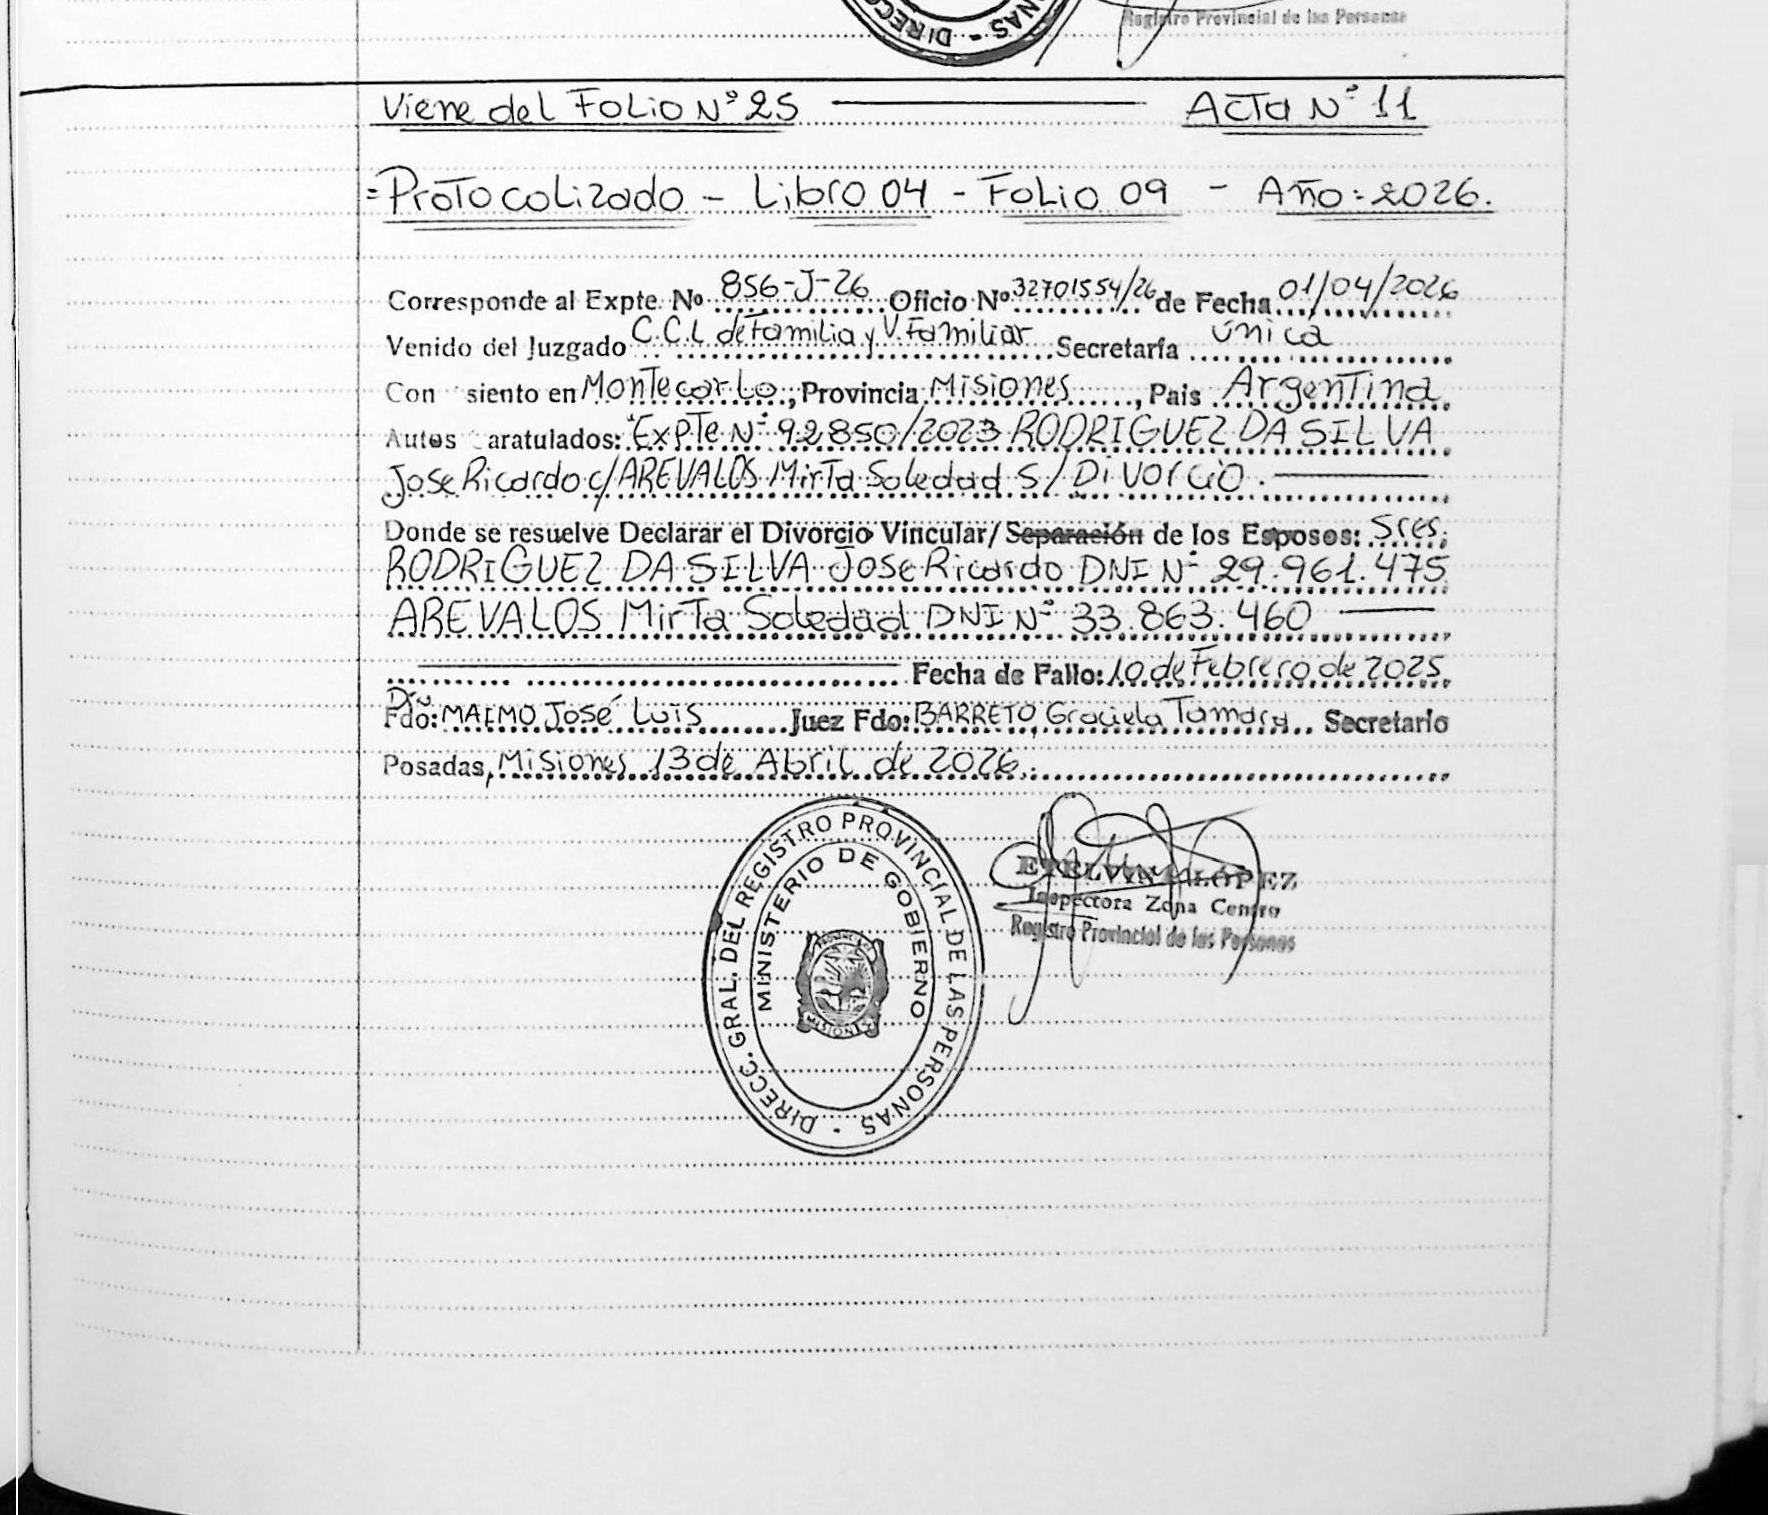 DIRECC
NAS -
Registro Provincial de las Personas
Viene del Folio N° 25 ACTA N° 11
=Protocolizado - Libro 04 - Folio 09 - Año: 2026.
Corresponde al Expte. No 856-J-26 Oficio No 32701554/26 de Fecha 01/04/2026
Venido del Juzgado C.C.L de Familia y V. Familiar Secretaría única
Con siento en Montecarlo, Provincia Misiones, Pais Argentina
Autos aratulados: "Expte N° 92850/2023 RODRIGUEZ DA SILVA
Jose Ricardo c/ AREVALOS Mirta Soledad S/ Divorcio.
Donde se resuelve Declarar el Divorcio Vincular/ Separación de los Esposos: Sres.
RODRIGUEZ DA SILVA Jose Ricardo DNI N° 29.961.475
AREVALOS Mirta Soledad DNI N° 33.863.460
Fecha de Fallo: 10 de Febrero de 2025
Fdo: José Luis Juez Fdo: BARRETO, Graciela Tamara Secretario
Posadas, Misiones 13 de Abril de 2026.
DIRECC. GRAL. DEL REGISTRO PROVINCIAL DE LAS PERSONAS -
MINISTERIO DE GOBIERNO
MISIONES
ETELVINA LÓPEZ
Inspectora Zona Centro
Registro Provincial de las Personas